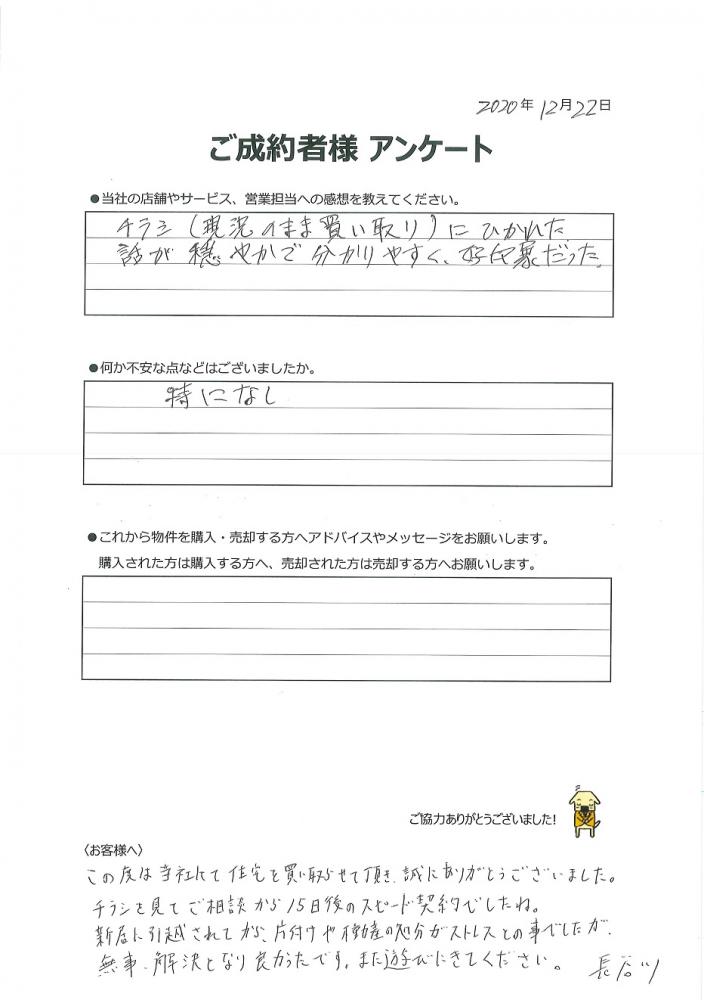 2020年12月22日
ご成約者様 アンケート
●当社の店舗やサービス、営業担当への感想を教えてください。
チラシ(現況のまま買い取り)にひかれた
話が穏やかで分かりやすく、好印象だった。
●何か不安な点などはございましたか。
特になし
●これから物件を購入・売却する方へアドバイスやメッセージをお願いします。
購入された方は購入する方へ、売却された方は売却する方へお願いします。
ご協力ありがとうございました!
〈お客様へ〉
この度は当社にて住宅を買い取らせて頂き、誠にありがとうございました。
チラシを見てご相談から15日後のスピード契約でしたね。
新居に引越されてから、片付けや不動産の処分がストレスとの事でしたが、
無事、解決となり良かったです。また遊びにきてください。 長谷川